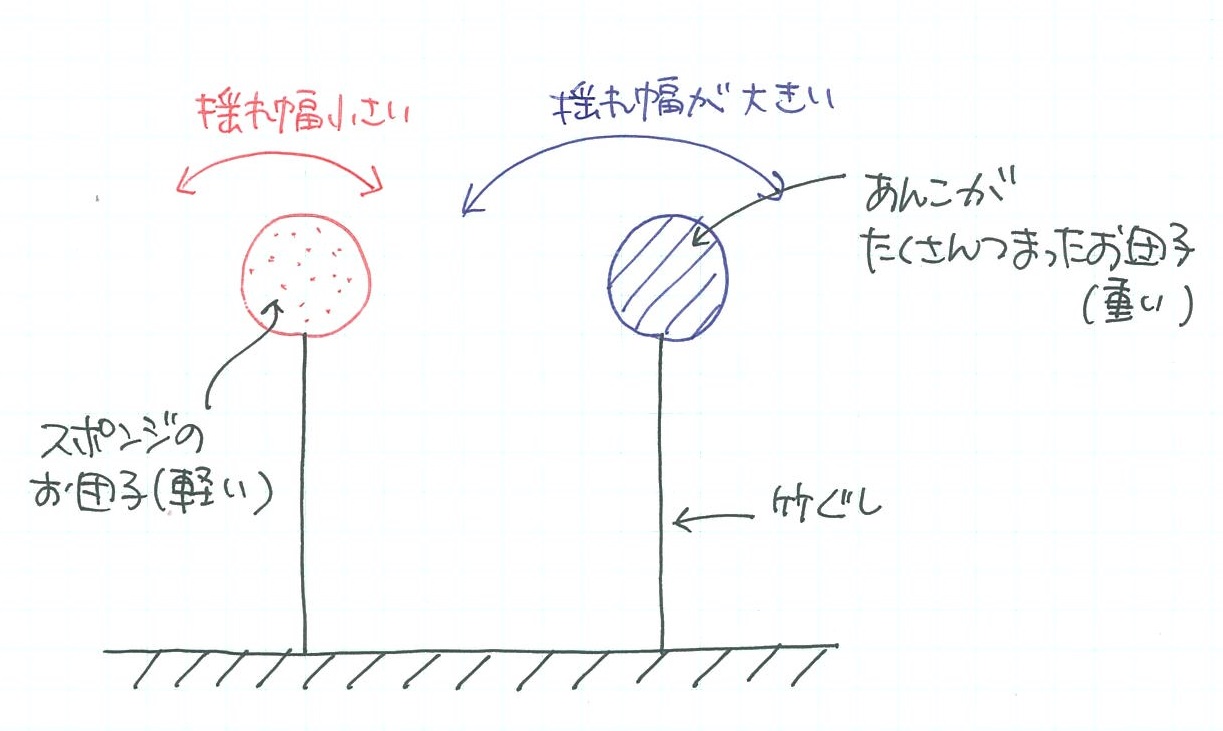 揺れ幅小さい
揺れ幅が大きい
あんこが
たくさんつまったお団子
(重い)
スポンジの
お団子(軽い)
竹ぐし